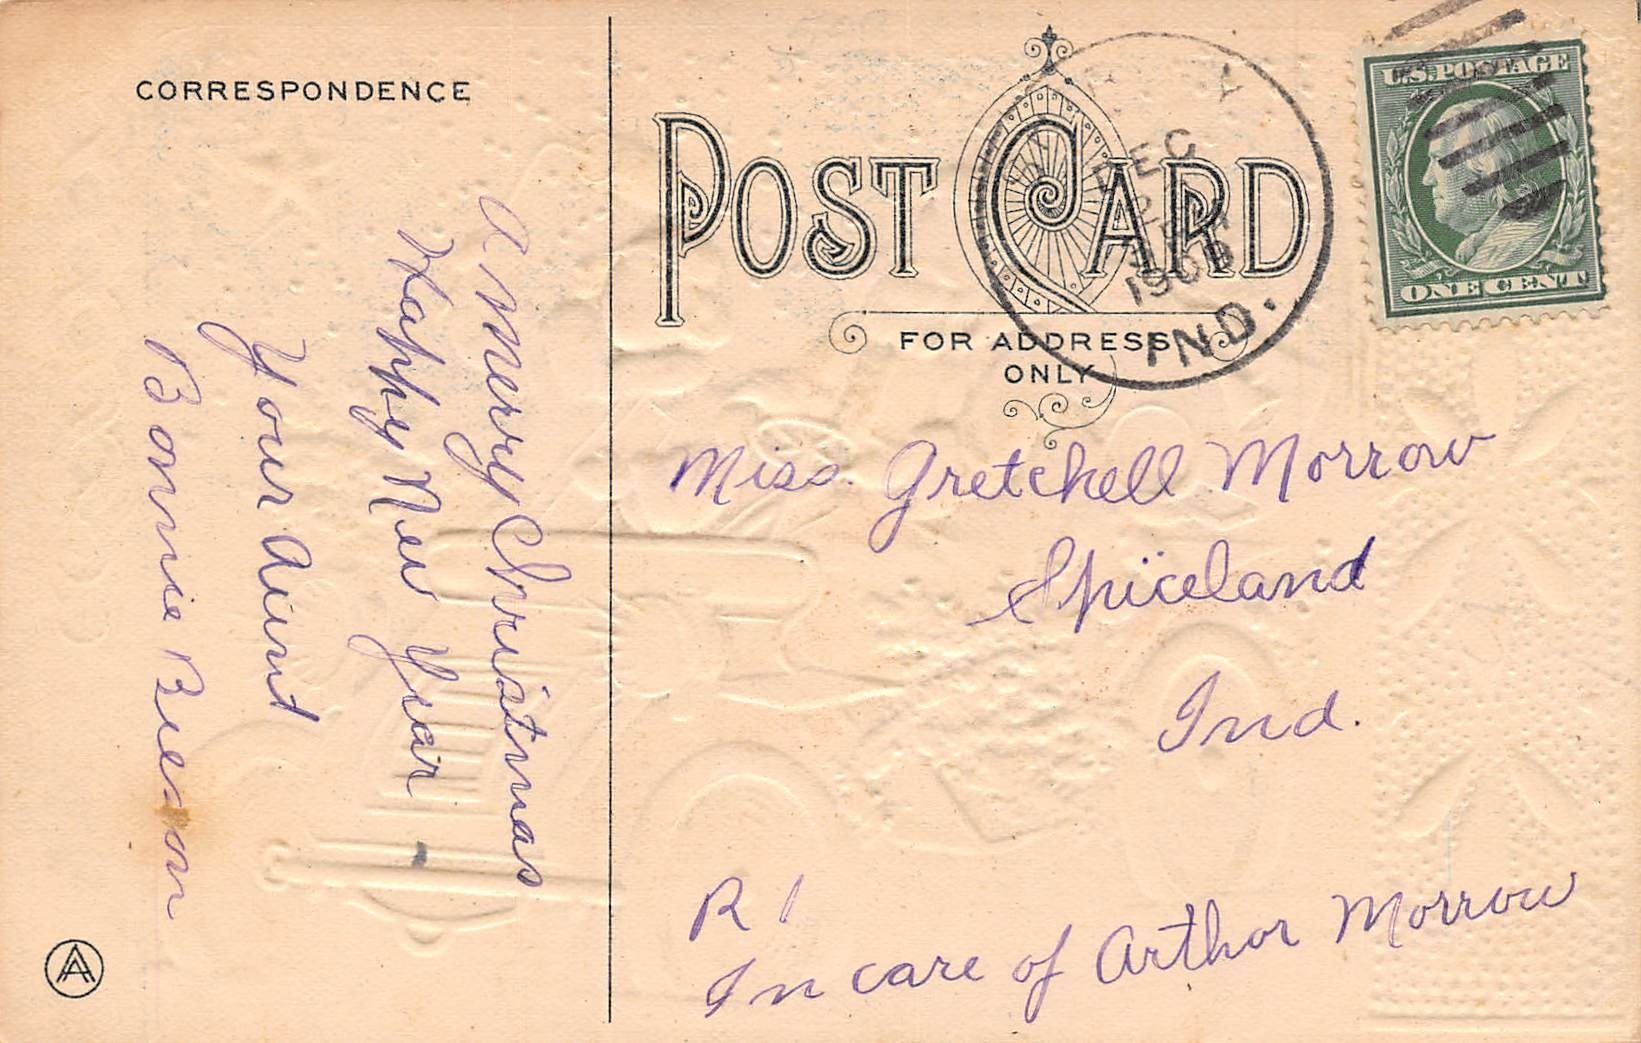 CORRESPONDENCE
A Merry Christmas
Happy New Year
Your Aunt
Bonnie
POST CARD
FOR ADDRESS
ONLY
DEC
1908
IND.
U.S. POSTAGE
ONE CENT
Miss. Gretchell Morrow
Spiceland
Ind.
R 1
In care of Arthor Morrow
AA